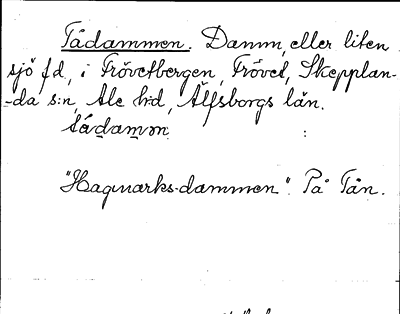 Tådammen. Damm, eller liten
sjö f d, i Trövetbergen, Trövet, Skepplan-
-da s:n, Ale h:d, Älfsborgs län.
tådamən
"Hagmarks-dammen". På Tån.